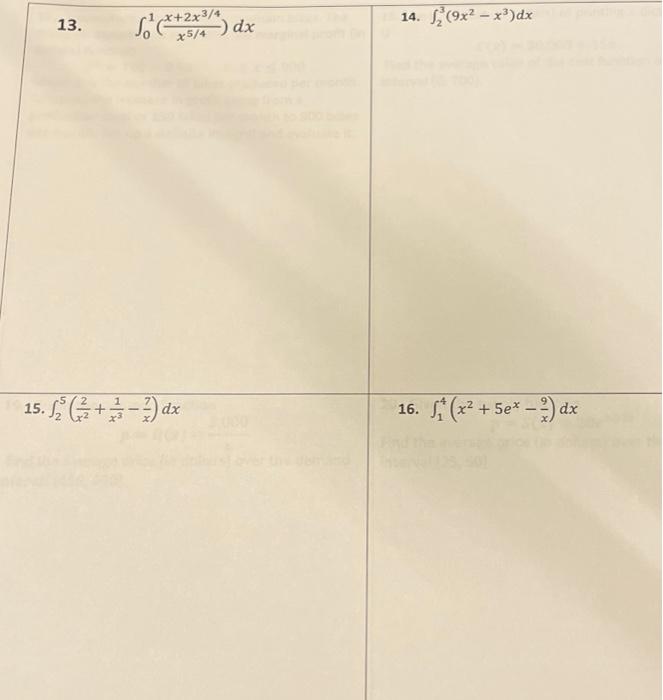 13. ∫₀¹ (x+2x^{3/4} / x^{5/4}) dx
14. ∫₂³(9x² − x³)dx
15. ∫₂⁵ (2/x² + 1/x³ − 7/x) dx
16. ∫₁⁴ (x² + 5eˣ − 9/x) dx